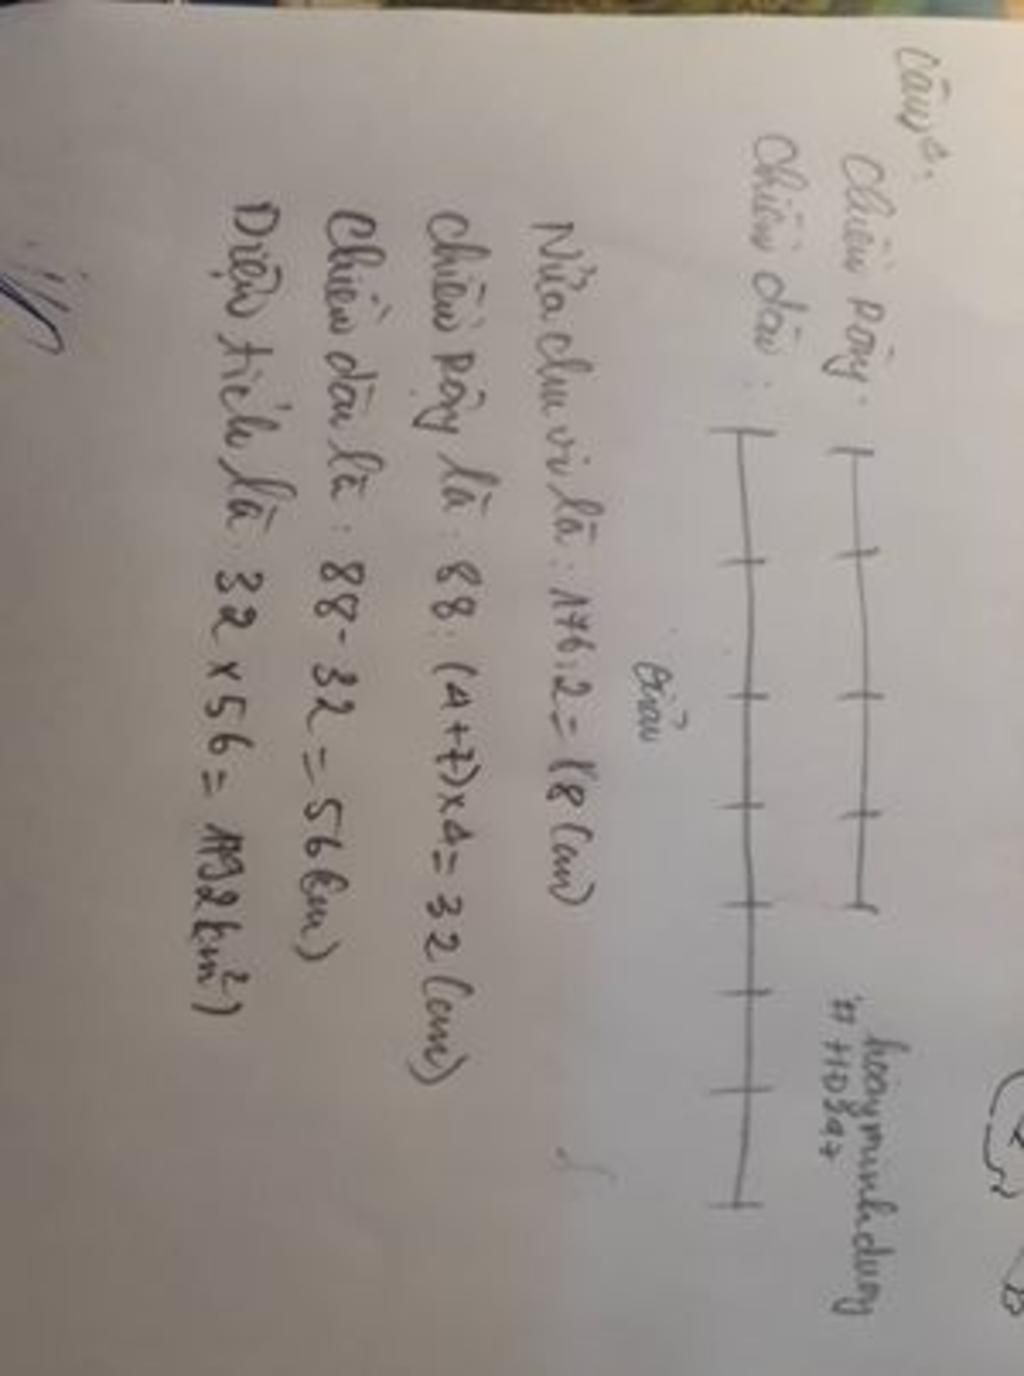 Câu
Chiều rộng.
Chiều dài :
hoàngminhduong
# HD397
Giải
Nửa chu vi là : 176:2 = 88 (cm)
chiều rộng là : 88:(4+7)x4 = 32 (cm)
Chiều dài là : 88-32 = 56 km)
Diện tích là : 32 x 56 = 1792 km²)